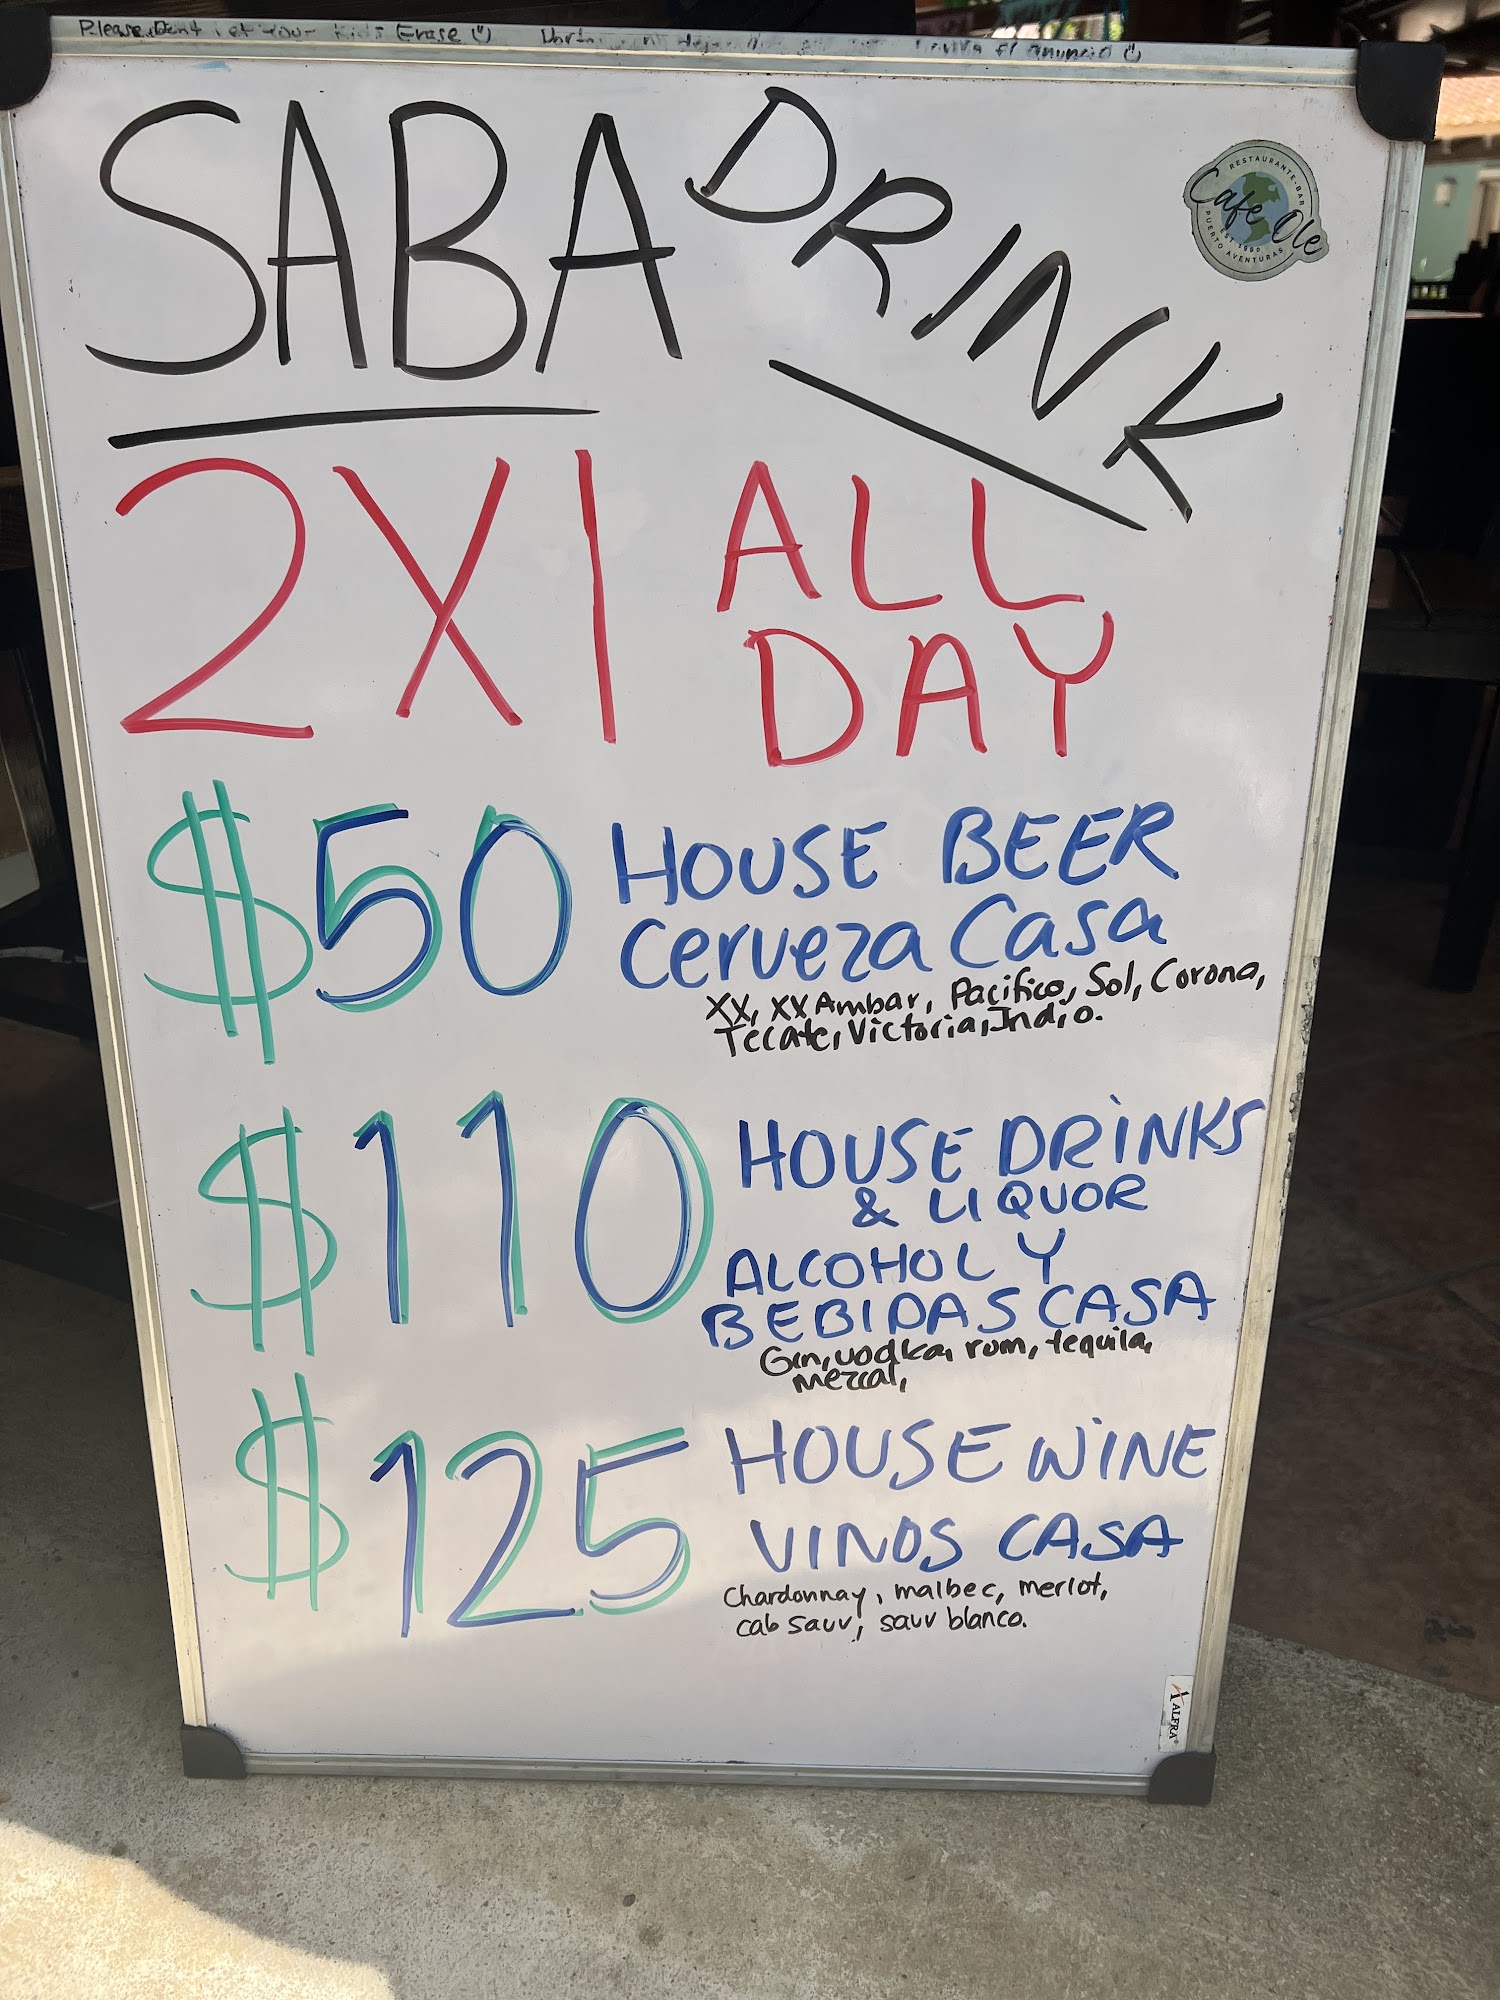 Please Dont Let Your Kids Erase
SABADRINK
RESTAURANTE-BAR
Cafe Ole
EST 1990
PUERTO AVENTURAS
2X1 ALL
DAY
$50 HOUSE BEER
Cerveza Casa
XX, XX Ambar, Pacifico, Sol, Corona,
Tecate, Victoria, Indio.
$110 HOUSE DRINKS
& LIQUOR
ALCOHOL Y
BEBIDAS CASA
Gin, vodka, rum, tequila,
mezcal,
$125 HOUSE WINE
VINOS CASA
Chardonnay, malbec, merlot,
cab sauv, sauv blanco.
ALFRA